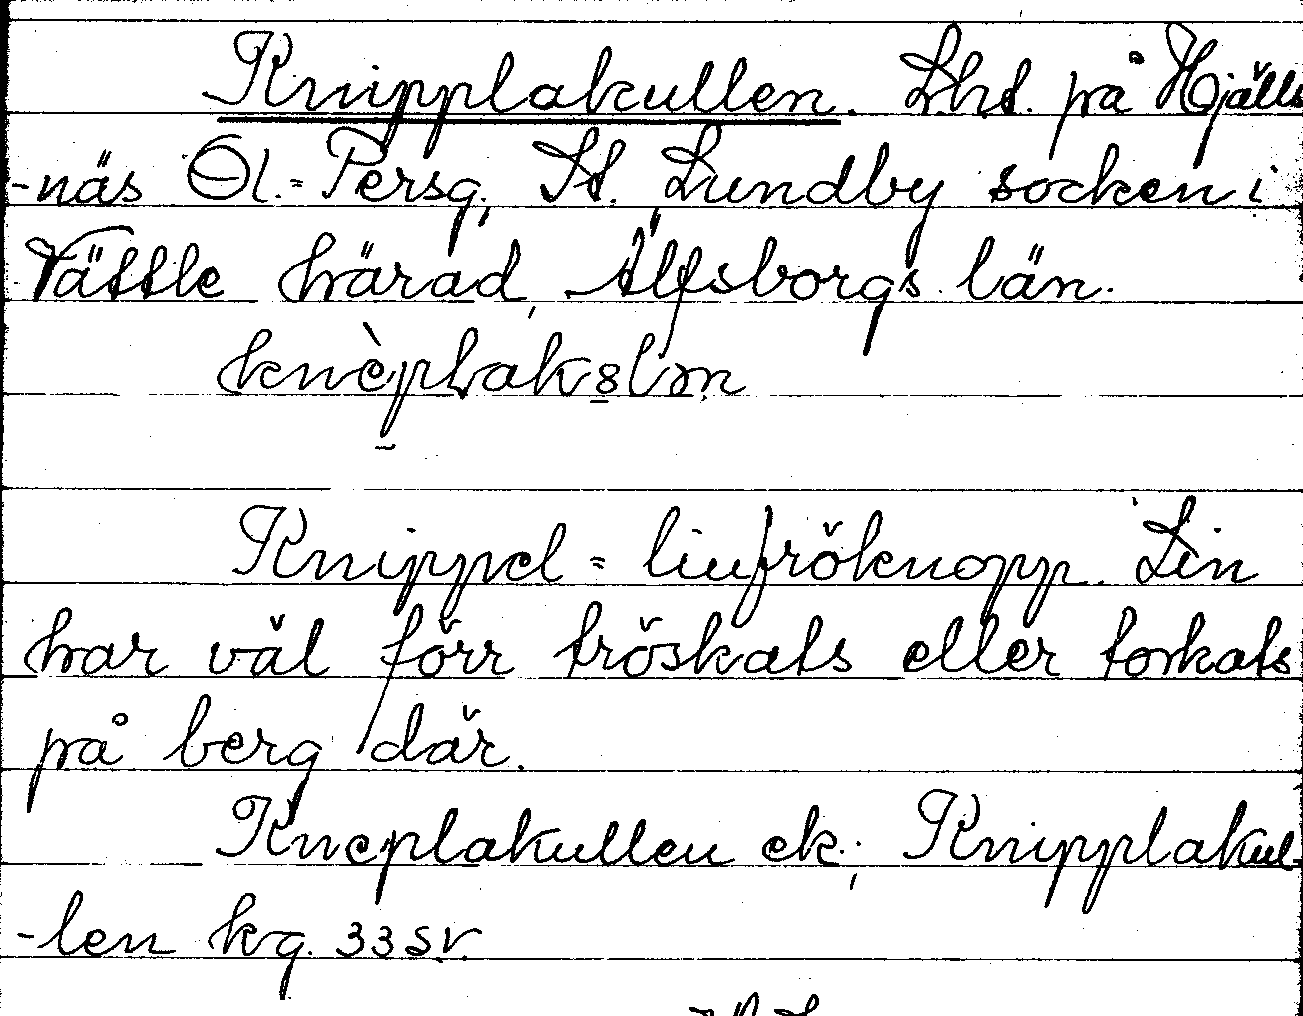 Knipplakullen. Lht. på Hjälls
-näs Öl.-Persg., St. Lundby socken i
Vättle härad, Älfsborgs län.
knèplakslm
Knippel = linfröknopp. Lin
har väl förr tröskats eller torkats
på berg där.
Kneplakullen ek.; Knipplakul-
-len kg. 33 SV.